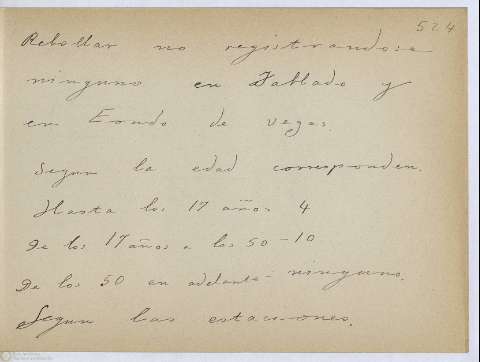 524
Rebollar no registrandose
ninguno en Tablado y
en Erudo de Vegas.
Segun la edad corresponden.
Hasta los 17 años 4
De los 17 años a los 50 - 10
De los 50 en adelante - ninguno.
Segun las estaciones.